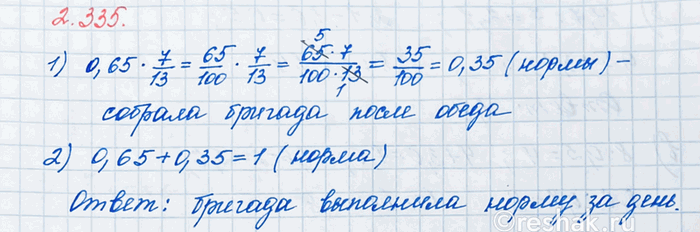 2.335.
1) 0,65 · 7/13 = 65/100 · 7/13 = 65 5 · 7 / 100 · 13 1 = 35/100 = 0,35 (нормы) –
собрала бригада после обеда
2) 0,65 + 0,35 = 1 (норма)
Ответ: бригада выполнила норму за день.
©reshak.ru